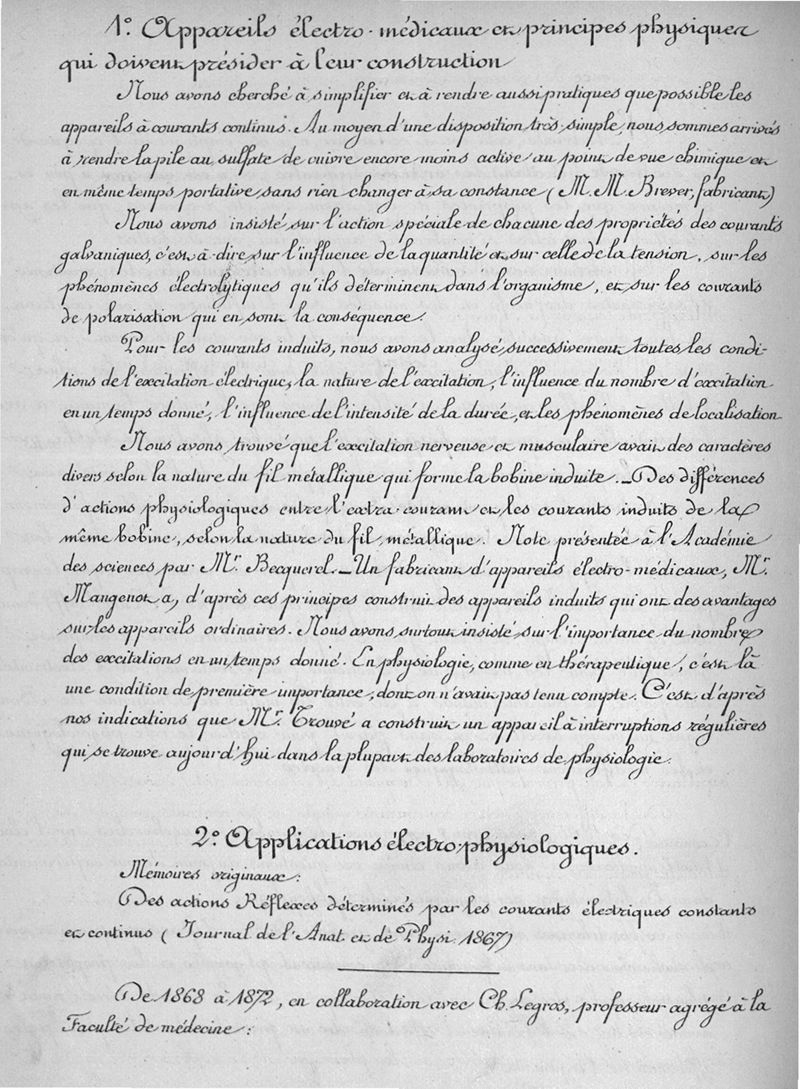 1º. Appareils électro-médicaux et principes physiques
qui doivent présider à leur construction
Nous avons cherché à simplifier et à rendre aussi pratiques que possible les
appareils à courants continus. Au moyen d'une disposition très simple, nous sommes arrivés
à rendre la pile au sulfate de cuivre encore moins active au point de vue chimique et
en même temps portative, sans rien changer à sa constance (M. M. Brever, fabricant)
Nous avons insisté sur l'action spéciale de chacune des propriétés des courants
galvaniques, c'est-à-dire sur l'influence de la quantité et sur celle de la tension, sur les
phénomènes électrolytiques qu'ils déterminent dans l'organisme, et sur les courants
de polarisation qui en sont la conséquence.
Pour les courants induits, nous avons analysé, successivement toutes les condi-
tions de l'excitation électrique, la nature de l'excitation, l'influence du nombre d'excitation
en un temps donné, l'influence de l'intensité de la durée, et les phénomènes de localisation
Nous avons trouvé que l'excitation nerveuse et musculaire avait des caractères
divers selon la nature du fil métallique qui forme la bobine induite. _ Des différences
d'actions physiologiques entre l'extra-courant et les courants induits de la
même bobine, selon la nature du fil, métallique. Note présentée à l'Académie
des sciences par Mr. Becquerel. _ Un fabricant d'appareils électro-médicaux, Mr.
Mangenot a, d'après ces principes construit des appareils induits qui ont des avantages
sur les appareils ordinaires. Nous avons, surtout insisté sur l'importance du nombre
des excitations en un temps donné. En physiologie, comme en thérapeutique, c'est là
une condition de première importance, dont on n'avait pas tenu compte. C'est d'après
nos indications que Mr. Trouvé a construit un appareil à interruptions régulières
qui se trouve aujourd'hui dans la plupart des laboratoires de physiologie.
2º. Applications électro-physiologiques.
Mémoires originaux:
Des actions Réflexes déterminés par les courants électriques constants
et continus (Journal de l'Anat. et de Physi. 1867)
De 1868 à 1872, en collaboration avec Ch. Legros, professeur agrégé à la
Faculté de médecine: